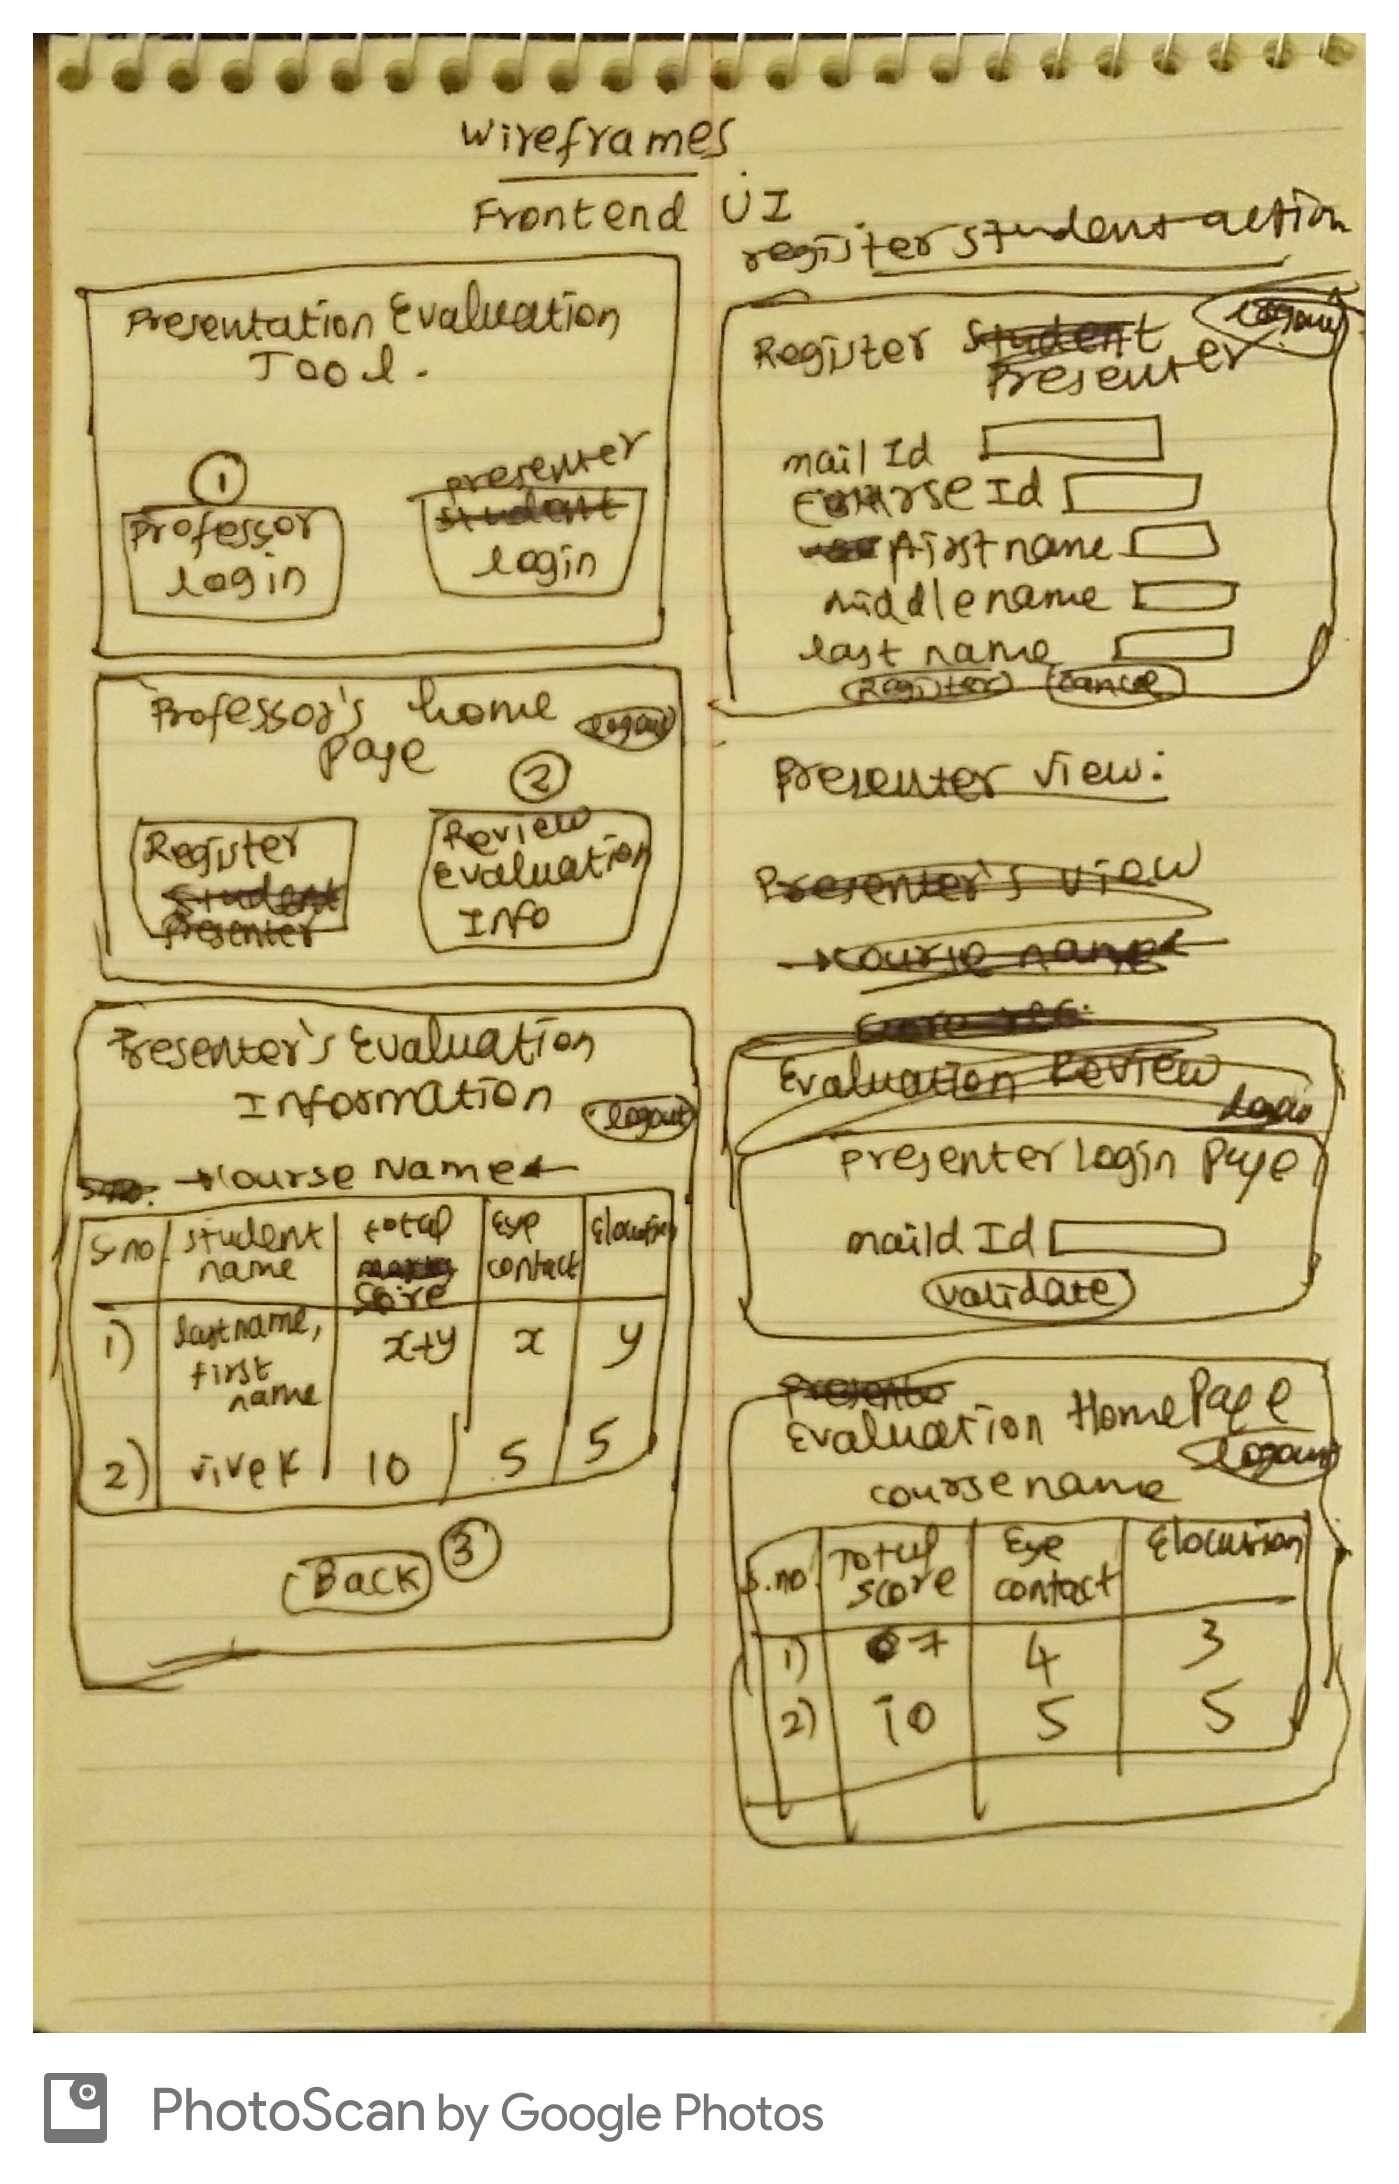 Wireframes
Frontend UI
Presentation Evaluation
Tool.
1
Professor
login
presenter
student
login
Professor's home
page
logout
2
Register
student
Presenter
Review
Evaluation
Info
Presenter's Evaluation
Information
logout
S.no.
Course Name
S.no. student name total score Eye contact Elocution
1) lastname, first name x+y x y
2) vivek 10 5 5
Back 3
register student action
logout
Register student
Presenter
mail Id
course Id
first name
middle name
last name
Register cancel
Presenter view:
Presenter's view
course name
Evaluation Review
presenter login page
maild Id
validate
Presente
Evaluation HomePage
logout
course name
S.no. Total score Eye contact Elocution
1) 07 4 3
2) 10 5 5
PhotoScan by Google Photos